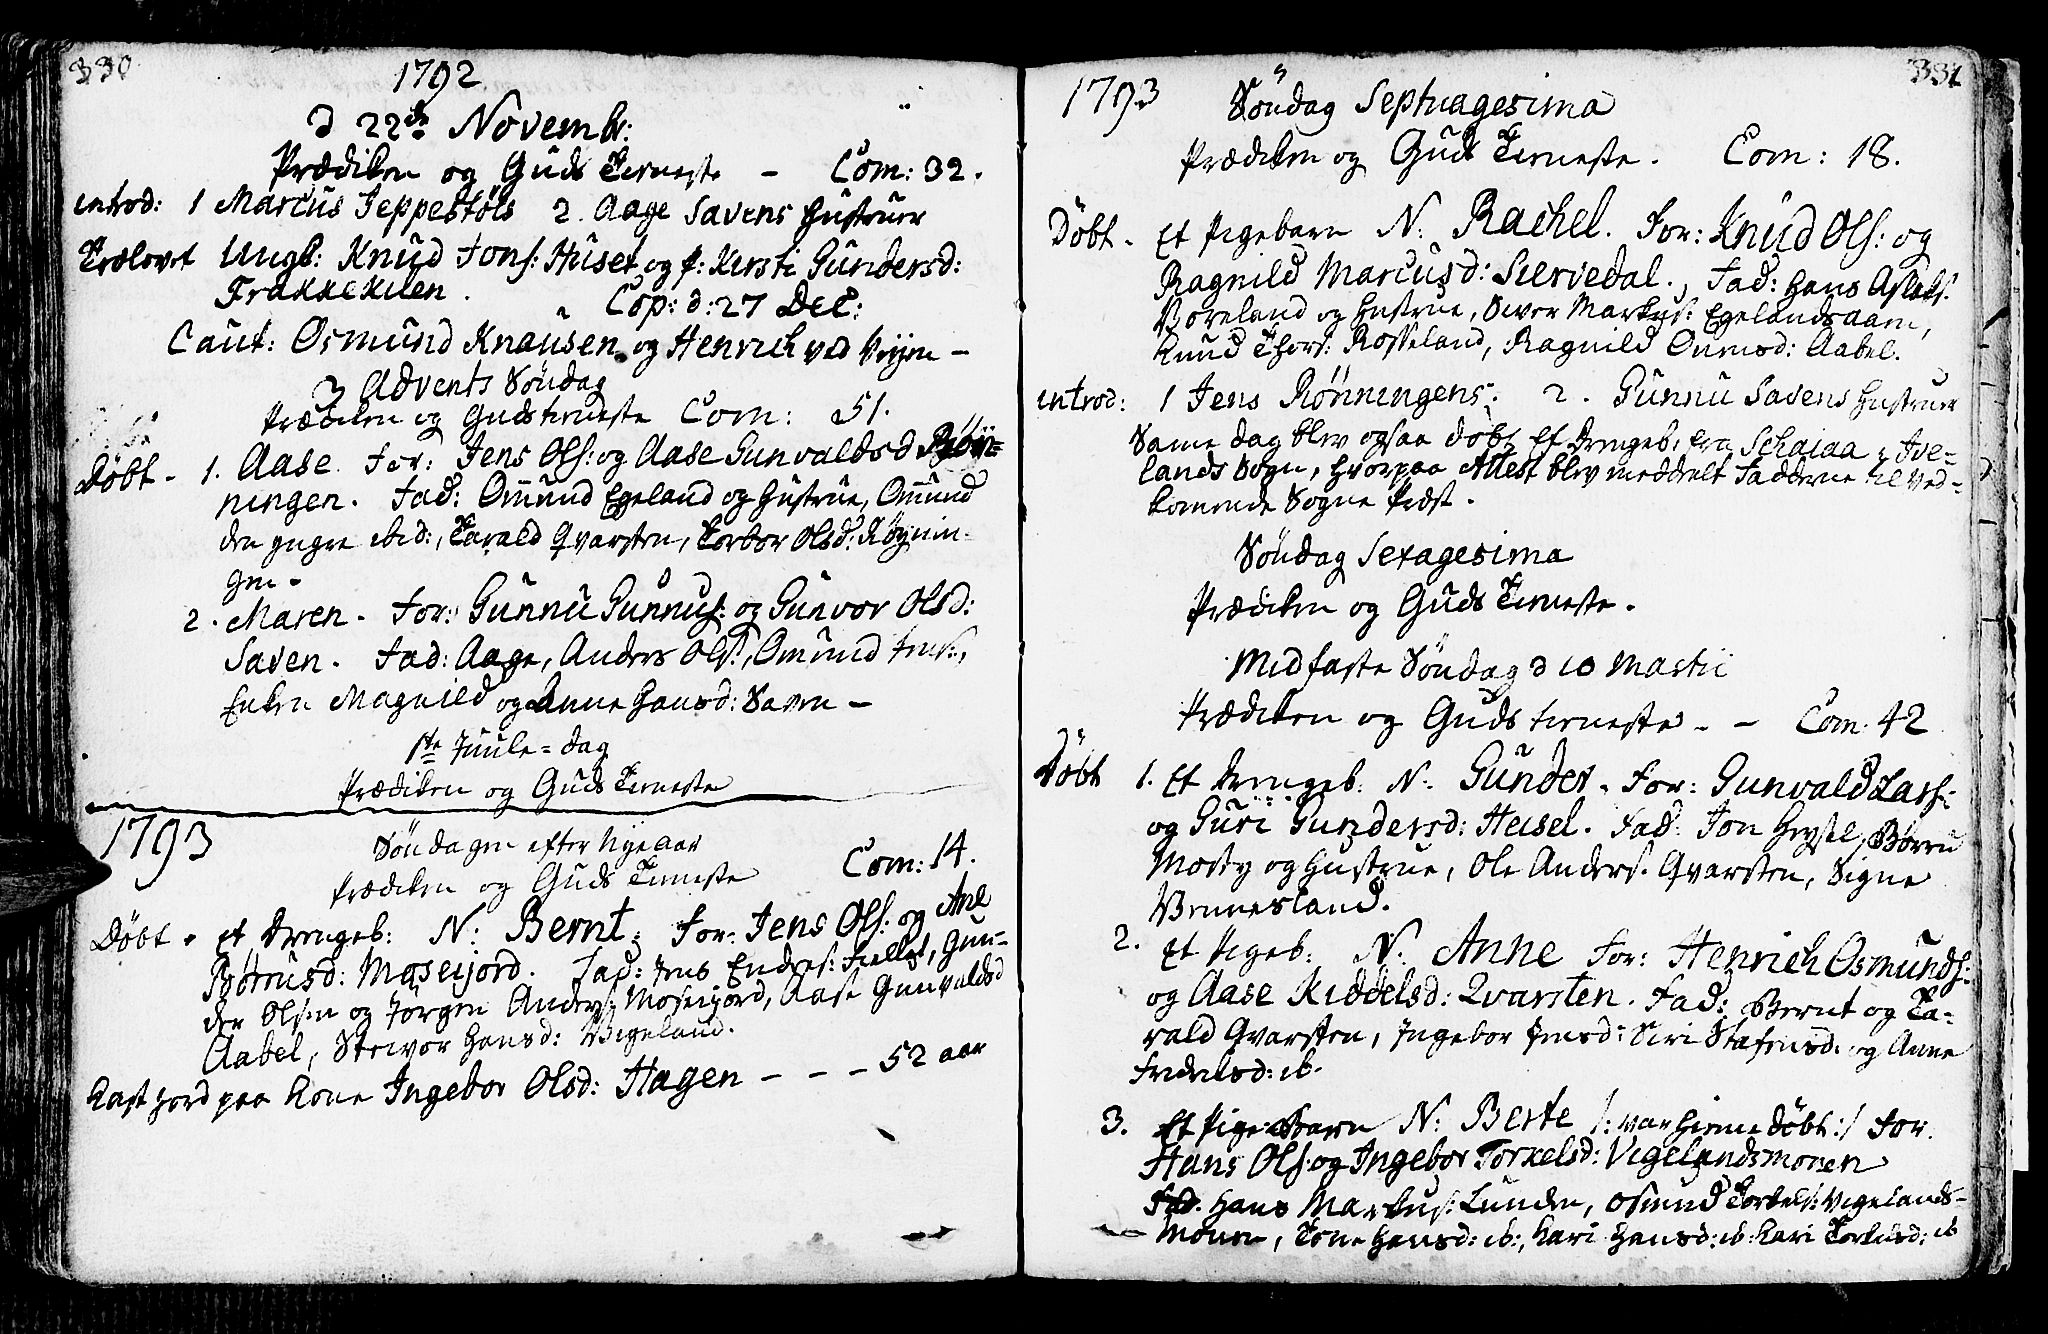 330
1792
d 22de Novembr:
Prædiken og Guds Tieneste - Com: 32.
introd: 1 Marcus Jeppestöls 2. Aage Savens Hustruer
Trolovet Ungk: Knud Jons: Huset og p: Kirsti Gundersd:
Frakkekilen. Cop: d: 27 Dec:
Caut: Osmund Knausen og Henrich ved -
3 Advents Söndag
Prædiken og Guds tieneste Com: 51.
Döbt - 1. Aase. For: Jens Ols: og Aase Gunvaldsd Röÿ=
ningen. Fad: Omund Egeland og Hustrue, Omund
den yngre ibid:, Tarald Qvarsten, Torbor Olsd: Röynin-
gen -
2. Maren. For: Gunnu Gunnus: og Gunvor Olsd:
Saven. Fad: Aage, Anders Ols:, Omund Jens:,
Enken Magnild og Anne Hansd: Saven -
1ste Juule=dag
Prædiken og Guds Tieneste
1793
Söndagen efter Nyeaar
Prædiken og Guds Tieneste Com: 14.
Döbt. et Drengeb: N: Bernt. For: Jens Ols: og Ane
Börrusd: Moseijord. Fad: Jens Enders: Fielles, Gun-
der Olsen og Jörgen Anders: Moseijord, Aase Gunvaldsd
Aabel, Steivor Hansd: Vigeland.
Kast Jord paa Kone Ingebor Olsd: Hagen - - - 52 aar
331
1793 Söndag Septuagesima
Prædiken og Guds Tieneste. Com: 18.
Döbt. et Pigebarn N: Rachel. For: Knud Ols: og
Ragnild Marcusd: Siervedal., Fad: Hans Aslaks:
Voreland og Hustrue, Siver Markus: Egelandsaam,
Knud Thors: Rosseland, Ragnild Onnisd: Aabel.
introd: 1 Jens Rönningens. 2. Gunnu Savens Hustruer
Same dag blev ogsaa döbt et Drengeb: fra Schaiaa i Ive=
lands Sogn, hvorpaa Attest blev meddelt Fadderne til Ved=
komende Sogne Præst.
Söndag Sexagesima
Prædiken og Guds Tieneste.
Midfaste Söndag d 10 Martii
Prædiken og Guds tieneste. - Com: 42
Döbt 1. Et Drengeb: N: Gunder. For: Gunvald Lars:
og Guri Gundersd: Heisel. Fad: Jon Heysel, Börru
Mosby og Hustrue, Ole Anders: Qvarsten, Signe
Vennesland.
2. Et Pigeb: N: Anne For: Henrich Osmunds:
og Aase Kiddelsd: Qvarsten. Fad: Bernt og Ta=
rald Qvarsten, Ingebor Jensd: Siri Stafensd: og Anne
Fredriksd: ib.
3. Et Pige Barn N: Berte /: var hieme döbt :/ For.
Hans Ols: og Ingebor Torkelsd: Vigelandsmonen
Fad. Hans Markus: Lunden, Osmund Torkels: Vigelands-
Monen, Tone Hansd: ib:, Kari Hansd: ib: Kari Torkelsd: ib